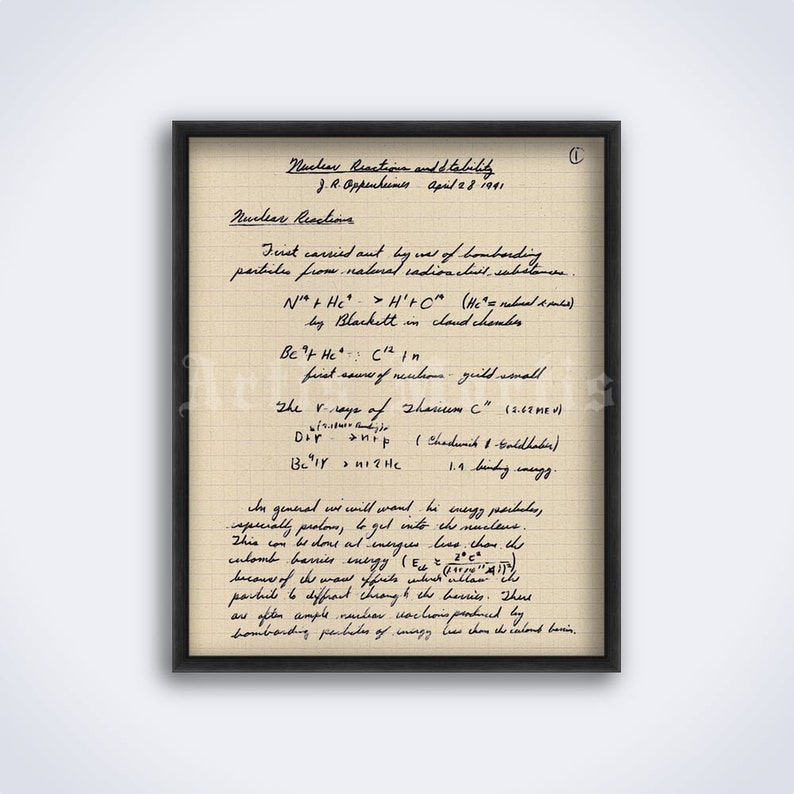 ①
Nuclear Reactions and Stability
J. R. Oppenheimer April 28 1941
Nuclear Reactions
First carried out by use of bombarding
particles from natural radioactive substances.
N¹⁴ + He⁴ -> H¹ + C¹⁴ (He⁴ = natural α particles)
by Blackett in cloud chamber
Be⁹ + He⁴ -: C¹² + n
first source of neutrons - yield small
The γ-rays of Thorium C" (2.62 MEV)
D+γ -> n+p (Chadwick & Goldhaber)
Be⁹+γ -> n+2He 1.9 binding energy.
In general we will want hi energy particles,
especially protons, to get into the nucleus.
This can be done at energies less than the
culomb barrier energy
because of the wave effects which allow the
particle to diffract through the barrier. There
are often ample nuclear reactions produced by
bombarding particles of energy less than the culomb barrier.